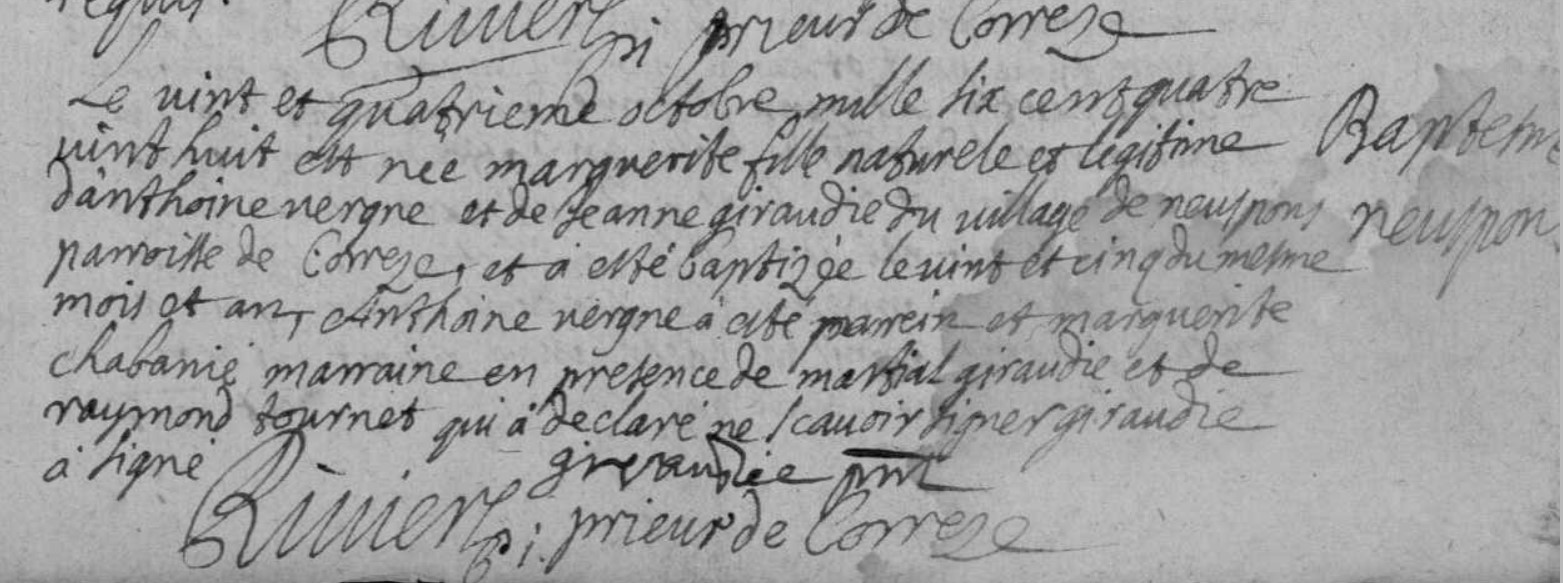 requis.
Rivier pi prieur de Correze
Le vint et quatrieme octobre mille six cent quatre
vint huit est née marguerite fille naturele et legitime
d'anthoine vergne et de Jeanne giraudie du village de neuspons
parroisse de Correze, et à esté baptizée le vint et cinq du mesme
mois et an, Anthoine vergne à esté parrein et marguerite
chabanie marraine en presence de martial giraudie et de
raymond tournet qui à declaré ne scavoir signer giraudie
à signé
Baptem
neuspon
giraudie pnt
Rivier pi. prieur de Correze